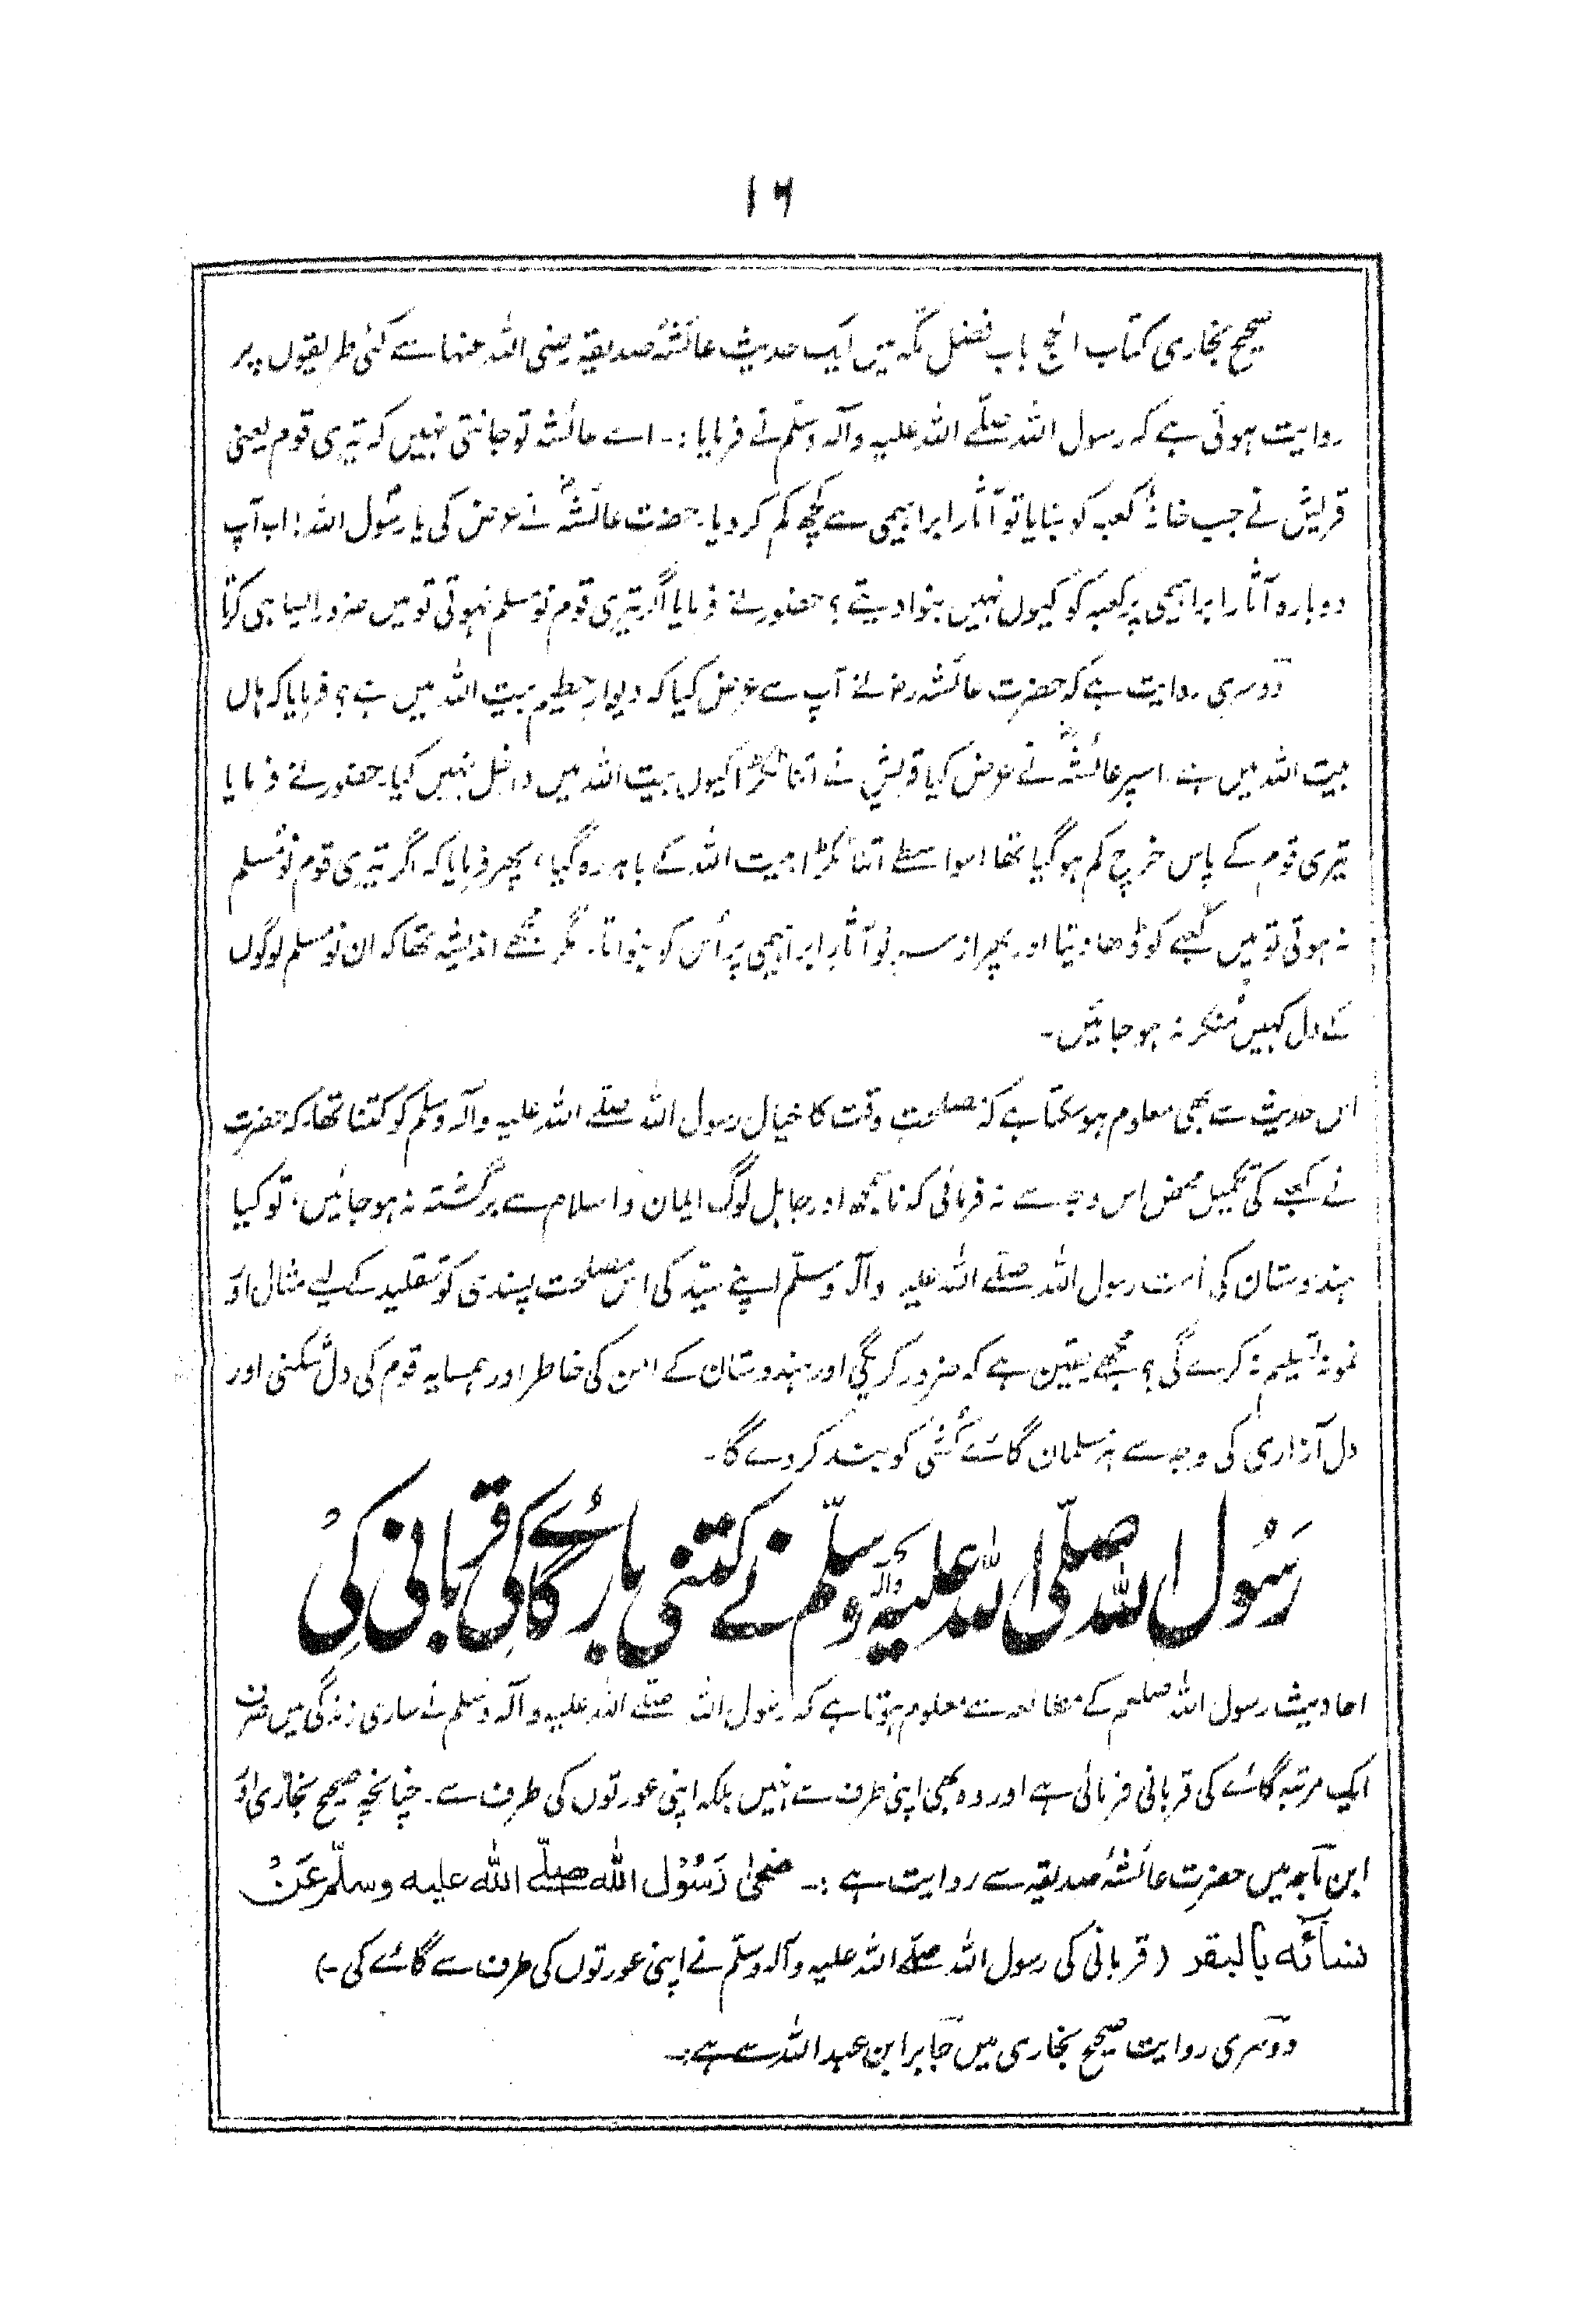 ۱۶
صحیح بخاری کتاب الحج باب فضل مکہ میں ایک حدیث عائشہؓ صدیقہ رضی اللہ عنہا سے کئی طریقوں پر
روایت ہوئی ہے کہ رسول اللہ صلّے اللہ علیہ وآلہ وسلّم نے فرمایا:۔ اے عائشہ تو جانتی نہیں کہ تیری قوم یعنی
قریش نے جب خانۂ کعبہ کو بنایا تو آثار ابراہیمی سے کچھ کم کر دیا۔ حضرت عائشہؓ نے عرض کی یا رسُول اللہ! اب آپ
دوبارہ آثار ابراہیمی پر کعبہ کو کیوں نہیں بنوا دیتے؟ حضور نے فرمایا اگر تیری قوم نومسلم نہوتی تو میں ضرور ایسا ہی کرتا
دوسری روایت ہے کہ حضرت عائشہ رضؓ نے آپ سے عرض کیا کہ دیوار حطیم بیت اللہ میں ہے؟ فرمایا کہ ہاں
بیت اللہ میں ہے۔ اسپر عائشہؓ نے عرض کیا قریش نے اتنا ٹکڑا کیوں بیت اللہ میں داخل نہیں کیا۔ حضور نے فرمایا
تیری قوم کے پاس خرچ کم ہو گیا تھا اسواسطے اتنا ٹکڑا بیت اللہ کے باہر رہ گیا، پھر فرمایا کہ اگر تیری قوم نومُسلم
نہ ہوتی تو میں کعبے کو ڈھا دیتا اور پھر از سر نو آثار ابراہیمی پر اُس کو بنواتا۔ مگر مجھے اندیشہ تھا کہ ان نومسلم لوگوں
کے دل کہیں مُنکر نہ ہو جائیں۔
اس حدیث سے بھی معلوم ہو سکتا ہے کہ مصلحتِ وقت کا خیال رسول اللہ صلّے اللہ علیہ وآلہ وسلم کو کتنا تھا، کہ حضرت
نے کعبے کی تکمیل محض اس وجہ سے نہ فرمائی کہ نا سمجھ اور جاہل لوگ ایمان و اسلام سے برگشتہ نہ ہو جائیں، تو کیا
ہندوستان کی اُمت رسول اللہ صلّے اللہ علیہ وآلہ وسلّم اپنے سیّد کی اس مصلحت پسندی کو تقلید کے لیے مثال اوَر
نمونہ تسلیم نہ کرے گی؟ مجھے یقین ہے کہ ضرور کریگی اور ہندوستان کے امن کی خاطر اور ہمسایہ قوم کی دل شکنی اور
دل آزاری کی وجہ سے ہر مسلمان گائے کُشی کو بند کر دے گا۔
رَسُول اللہ صلّی اللہ علیہ وآلہ وسلّم نے کتنی بار گائے کی قربانی کی
احادیث رسول اللہ صلعم کے مطالعہ سے معلوم ہوتا ہے کہ رسُول اللہ صلّے اللہ علیہ وآلہ وسلم نے ساری زندگی میں صرف
ایک مرتبہ گائے کی قربانی فرمائی ہے اور وہ بھی اپنی طرف سے نہیں بلکہ اپنی عورتوں کی طرف سے۔ چنانچہ صحیح بخاری اوَر
ابن ماجہ میں حضرت عائشہؓ صدیقہ سے روایت ہے:۔ ضحیٰ رَسُوْل اللّٰه صلّے اللّٰه علیه وسلّم عَنْ
نسآئه بالبقر (قربانی کی رسول اللہ صلّے اللہ علیہ وآلہ وسلّم نے اپنی عورتوں کی طرف سے گائے کی۔)
دوسری روایت صحیح بخاری میں جابر ابن عبداللہ سے ہے:۔